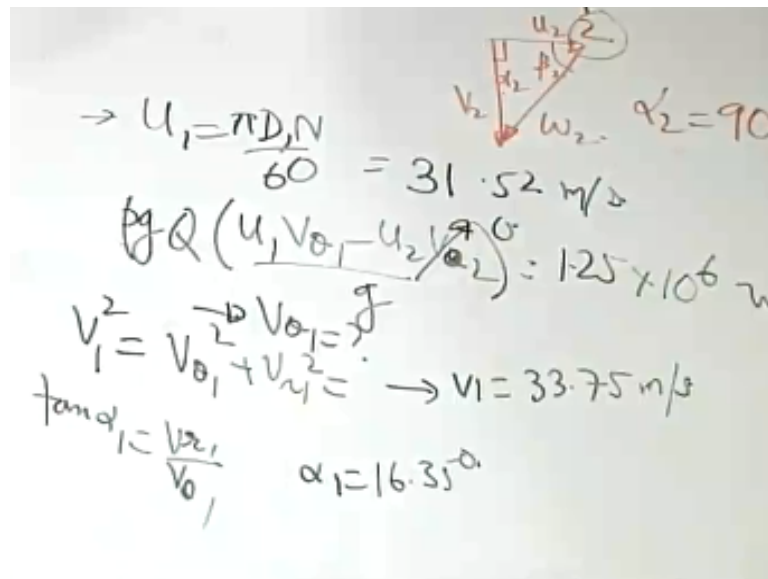 U₂ 2
α₂ β₂
V₂
W₂. α₂=90
→ U₁ = πD₁N/60 = 31.52 m/s
ρgQ(U₁Vθ₁ - U₂Vθ₂)/g = 1.25×10⁶ W
→ Vθ₁ = ?
V₁² = Vθ₁² + Vr₁² = → V₁ = 33.75 m/s
tanα₁ = Vr₁/Vθ₁ α₁ = 16.35⁰.